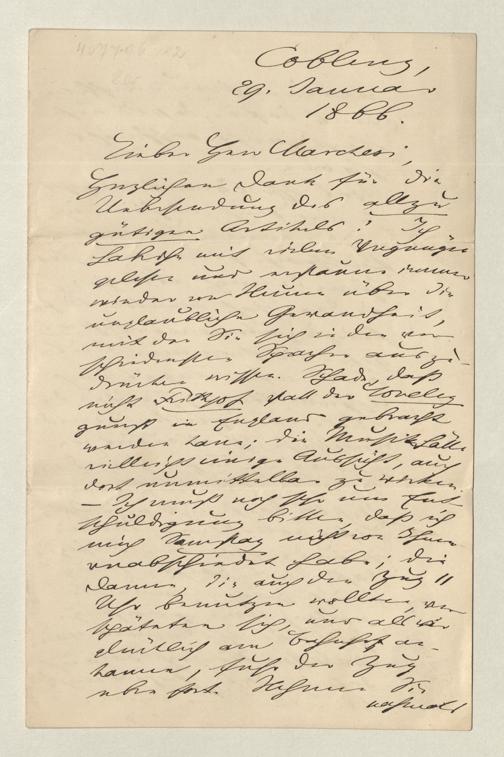 Coblenz,
29. Januar
1866.
Lieber Herr Marchesi,
Herzlichen Dank für die
Uebersendung des allzu
gütigen Artikels! Ich
habe ihn mit vielem Vergnügen
gelesen und erstaune immer
wieder von Neuem über die
unglaubliche Gewandheit,
mit der Sie sich in den ver-
schiedensten Sprachen auszu-
drücken wissen. Schade, daß
nicht statt der Loreley
in England gebracht
werden kann; die Musik hätte
vielleicht einige Aussicht, auch
dort unmittelbar zu wirken.
– Ich muß noch sehr um Ent-
schuldigung bitten, daß ich
mich Samstag nicht von Ihnen
verabschiedet habe; die
Damen, die auch den Zug 11
Uhr benutzen wollten, ver-
späteten sich, und als wir
glücklich am Bahnhof an-
kamen, fuhr der Zug
eben fort. Nehmen Sie
nochmals